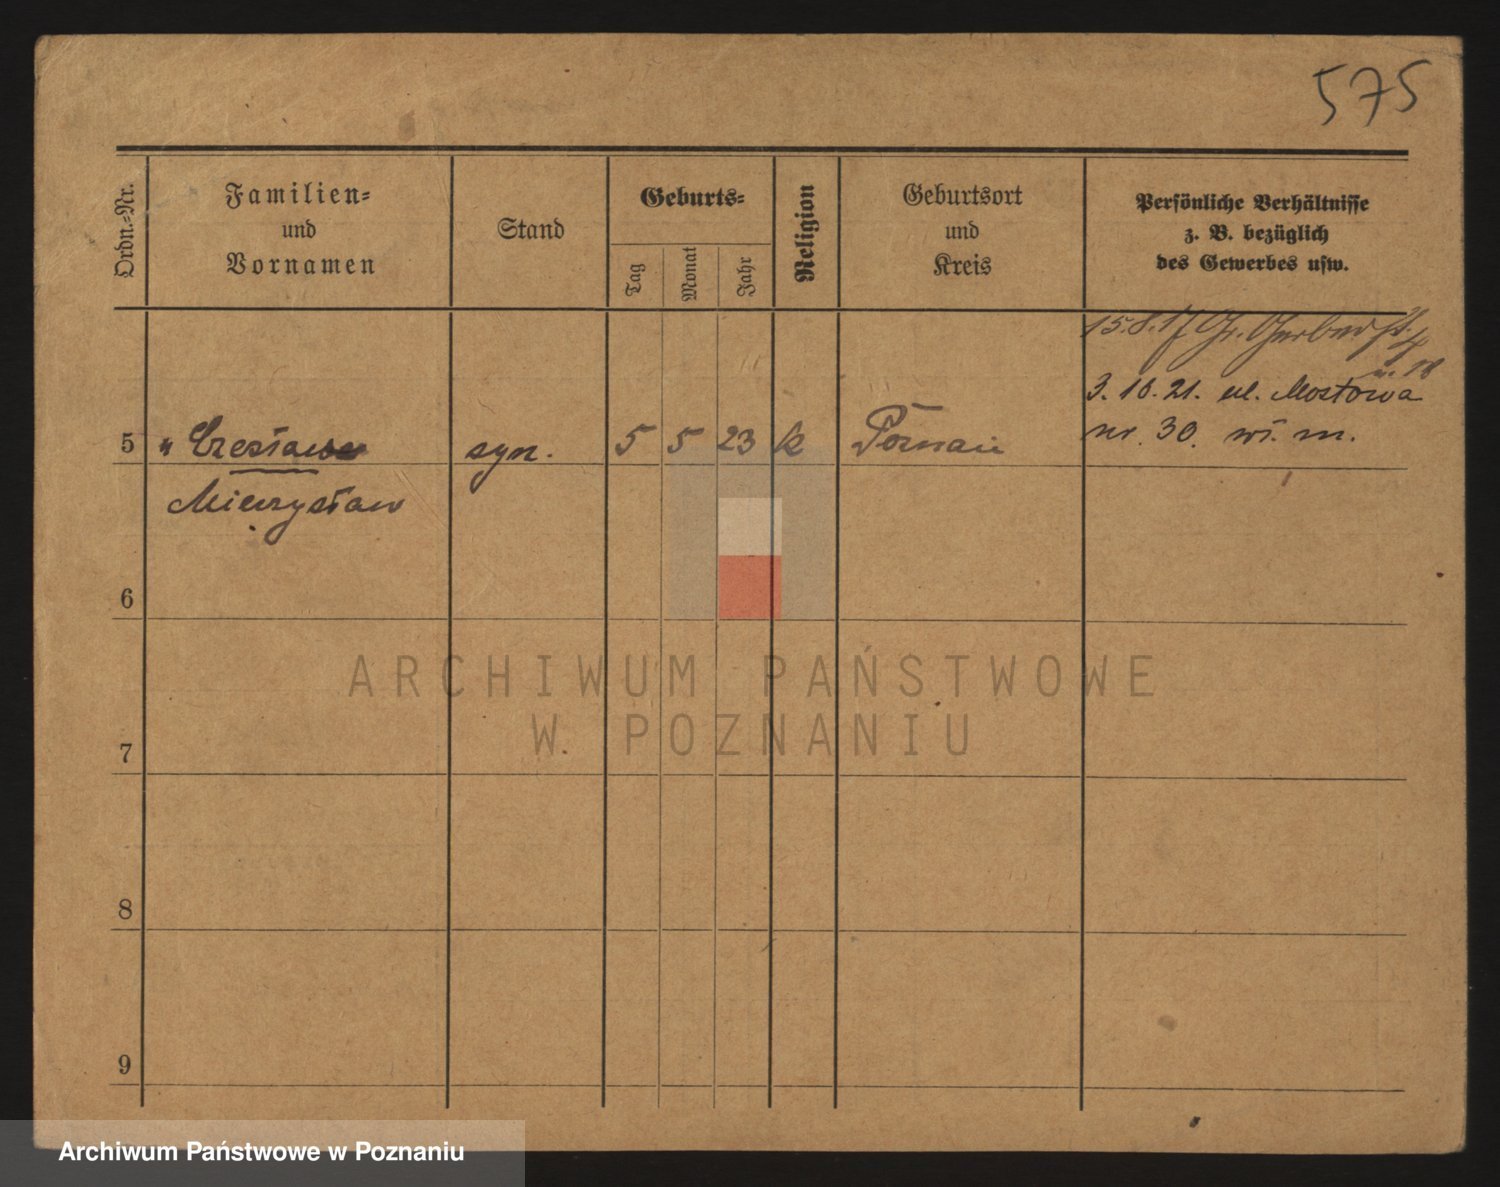 575
Ordn.-Nr.
Familien-
und
Vornamen
Stand
Geburts-
Tag
Monat
Jahr
Religion
Geburtsort
und
Kreis
Persönliche Verhältnisse
z. B. bezüglich
des Gewerbes usw.
15.8.17 Gr. Gerberst. 4
3.10.21. ul. Mostowa
nr. 30. m.
5 " Czesław syn. 5 5 23 k Poznań
Mieczysław
6
7
8
9
ARCHIWUM PAŃSTWOWE
W POZNANIU
Archiwum Państwowe w Poznaniu